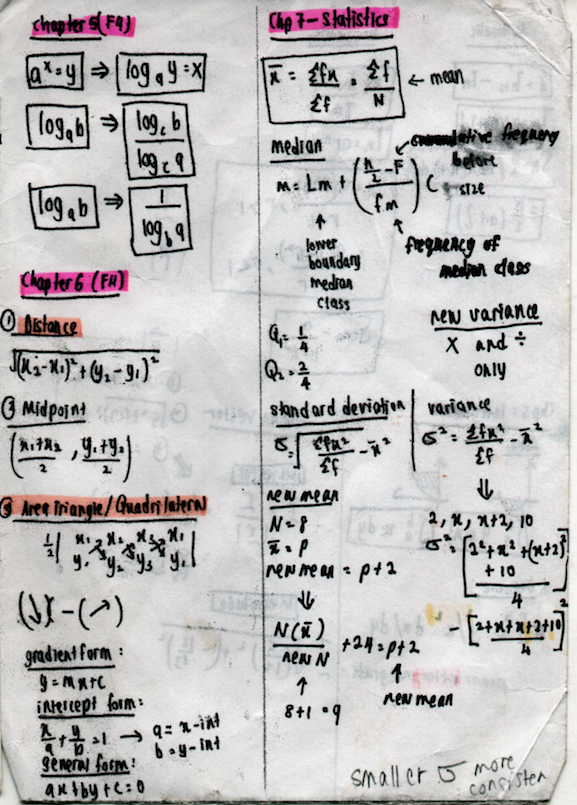 Chapter 5 (F4)
aˣ = y ⇒ logₐ y = x
logₐ b ⇒ log꜀ b / log꜀ a
logₐ b ⇒ 1 / log_b a
Chapter 6 (F4)
① Distance
√(x₂ - x₁)² + (y₂ - y₁)²
② Midpoint
(x₁+x₂ / 2 , y₁+y₂ / 2)
③ Area Triangle/Quadrilateral
½ | x₁ x₂ x₃ x₁
y₁ y₂ y₃ y₁ |
(↘) - (↗)
gradient form :
y = mx + c
intercept form :
x/a + y/b = 1 → a = x-int
b = y-int
general form :
ax + by + c = 0
Chp 7 - Statistics
x̄ = Σfx / Σf = Σf / N ← mean
median
cumulative frequency
before
m = Lm + (n/2 - F / fm) C
size
lower
boundary
median
class
frequency of
median class
Q₁ = 1/4
Q₂ = 2/4
new variance
X and ÷
only
standard deviation
σ = √Σfx² / Σf - x̄²
variance
σ² = Σfx² / Σf - x̄²
new mean
N = 8
x̄ = p
new mean = p + 2
⇓
N(x̄) / new N + 24 = p + 2
8 + 1 = 9
new mean
⇓
2, x, x+2, 10
σ² = [2² + x² + (x+2)²
+ 10 / 4]
- [2+x+x+2+10 / 4]²
smaller σ more
consisten